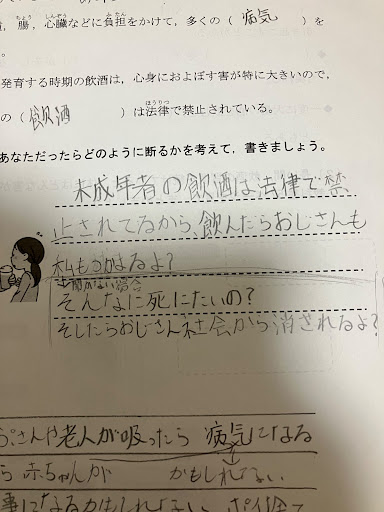 腸，心臓などに負担をかけて，多くの（ 病気 ）を
発育する時期の飲酒は，心身におよぼす害が特に大きいので，
の（ 飲酒 ）は法律で禁止されている。
あなただったらどのように断るかを考えて，書きましょう。
未成年者の飲酒は法律で禁
止されてるから、飲んだらおじさんも
私もつかまるよ？
聞かない場合
そんなに死にたいの？
そしたらおじさん社会から消されるよ？
さんや老人が吸ったら 病気になる
ら 赤ちゃんが かもしれない
事になるかもしれない ポイ捨て